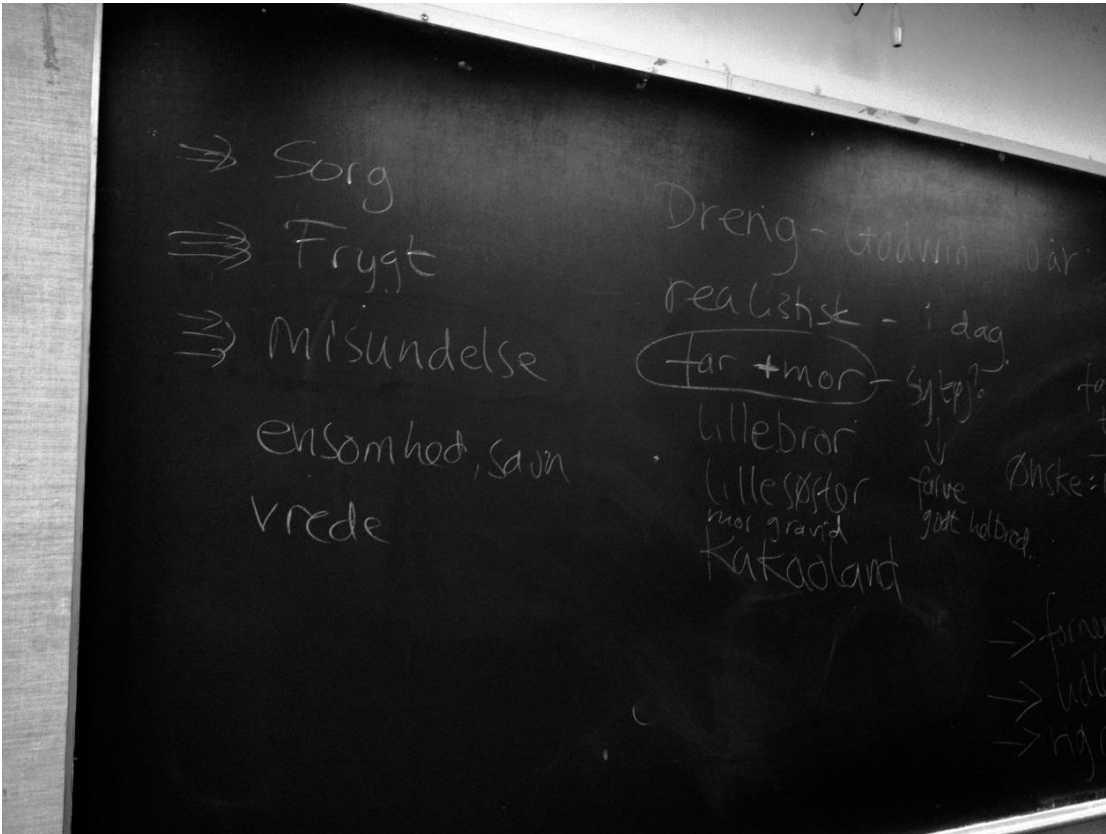 → Sorg
→ Frygt
→ Misundelse
ensomhed, savn
vrede
Dreng - Godwin år
realistisk - i dag
far + mor -
lillebror
lillesøster
mor gravid
Kakaoland
↓
farve
godt helbred..
Ønske =
→
→
→